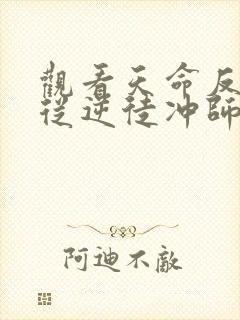 觀看天命反
從逆徒冲師
阿迪不敵